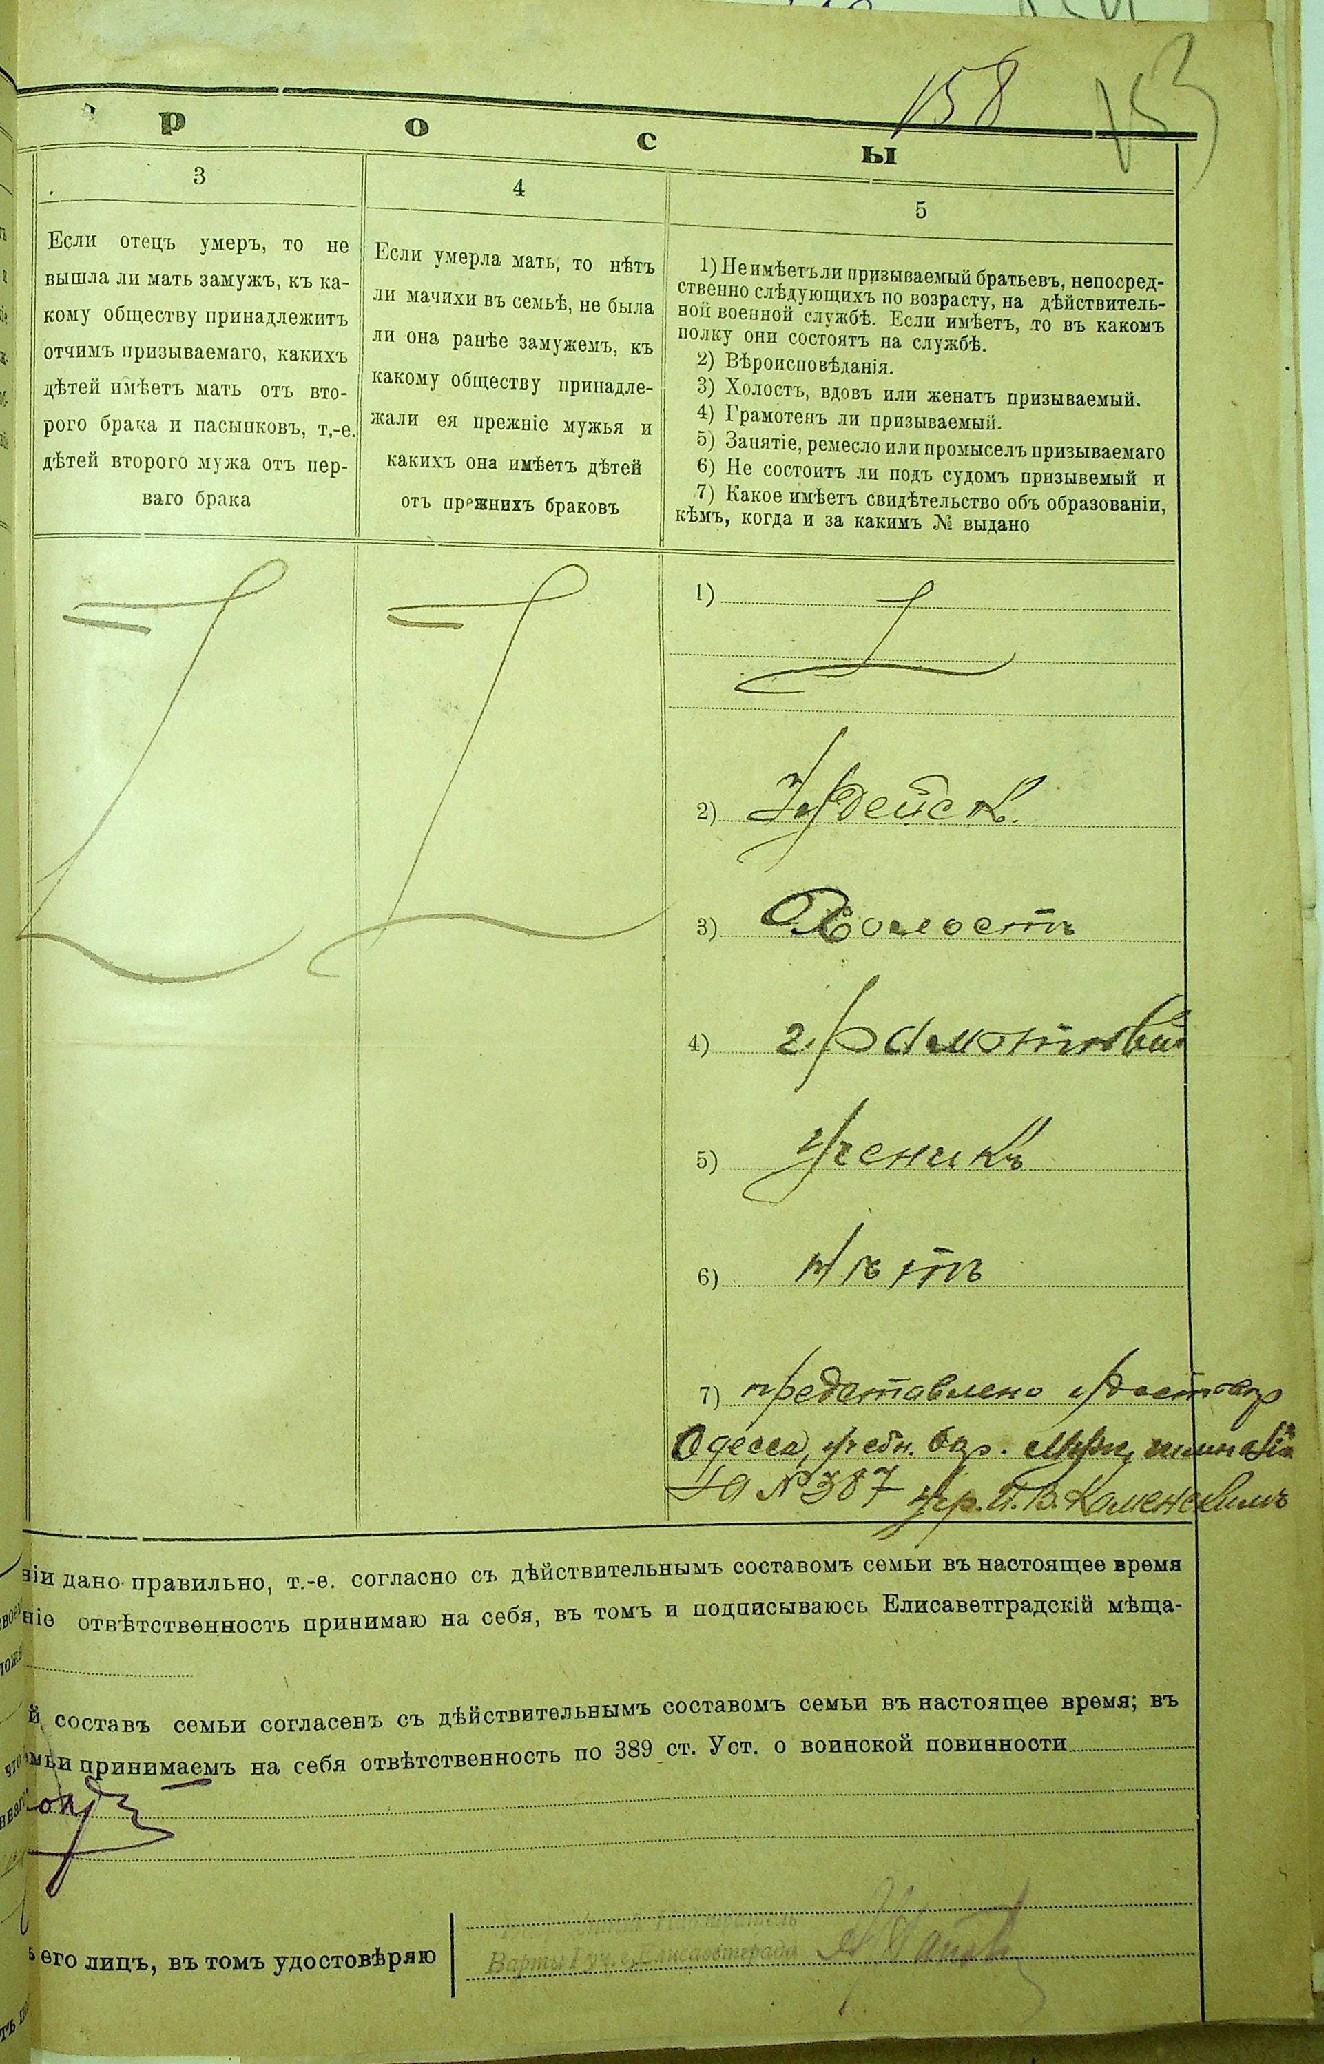 158 153
Р О С Ы
3
4
5
Если отецъ умеръ, то не
вышла ли мать замужъ, къ ка-
кому обществу принадлежитъ
отчимъ призываемаго, какихъ
дѣтей имѣетъ мать отъ вто-
рого брака и пасынковъ, т.-е.
дѣтей второго мужа отъ пер-
ваго брака
Если умерла мать, то нѣтъ
ли мачихи въ семьѣ, не была
ли она ранѣе замужемъ, къ
какому обществу принадле-
жали ея прежніе мужья и
какихъ она имѣетъ дѣтей
отъ прежнихъ браковъ
1) Не имѣетъ ли призываемый братьевъ, непосред-
ственно слѣдующихъ по возрасту, на дѣйствитель-
ной военной службѣ. Если имѣетъ, то въ какомъ
полку они состоятъ на службѣ.
2) Вѣроисповѣданія.
3) Холостъ, вдовъ или женатъ призываемый.
4) Грамотенъ ли призываемый.
5) Занятіе, ремесло или промыселъ призываемаго
6) Не состоитъ ли подъ судомъ призывемый и
7) Какое имѣетъ свидѣтельство объ образованіи,
кѣмъ, когда и за какимъ № выдано
1)
2) Іудейск.
3) Холостъ
4) грамотный
5) ученикъ
6) нѣтъ
7) представлено удостовѣр
Одесск, учебн. гимназіи
за № 387 учр. И. В. Каменскимъ
ніи дано правильно, т.-е. согласно съ дѣйствительнымъ составомъ семьи въ настоящее время
ніе отвѣтственность принимаю на себя, въ томъ и подписываюсь Елисаветградскій мѣща-
й составъ семьи согласенъ съ дѣйствительнымъ составомъ семьи въ настоящее время; въ
мьи принимаемъ на себя отвѣтственность по 389 ст. Уст. о воинской повинности
его лицъ, въ томъ удостовѣряю
Варты I уч. г. Елисаветграда